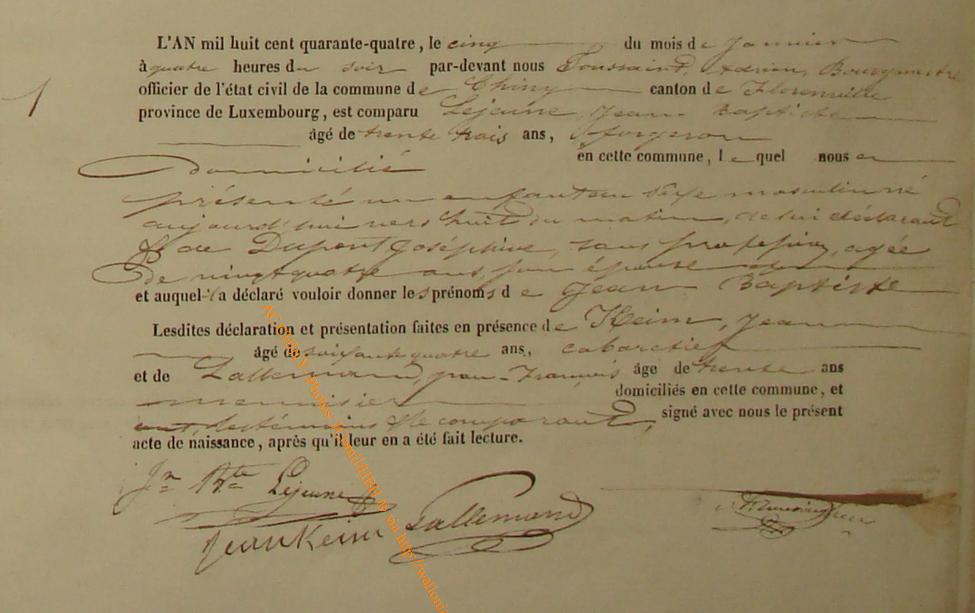 L'AN mil huit cent quarante-quatre, le cinq du mois de Janvier
1
à quatre heures du soir par-devant nous Toussaint, Adrien, Bourgmestre
officier de l'état civil de la commune de Chiny canton de Florenville
province de Luxembourg, est comparu Lejeune, Jean Baptiste
âgé de trente trois ans, forgeron
domicilié en cette commune, lequel nous a
présenté un enfant du sexe masculin né
aujourd'hui vers huit du matin, de lui déclarant
& de Dupont Joséphine, sans profession, agée
de vingt quatre ans, son épouse
et auquel il a déclaré vouloir donner les prénoms de Jean Baptiste
Lesdites déclaration et présentation faites en présence de Keim, Jean
âgé de soixante quatre ans, cabaretier
et de Lallemand, Jean-François âgé de trente ans
menuisier domiciliés en cette commune, et
ont les témoins & le comparant, signé avec nous le présent
acte de naissance, après qu'il leur en a été fait lecture.
Jn Bte Lejeune
Jean Keim Lallemand